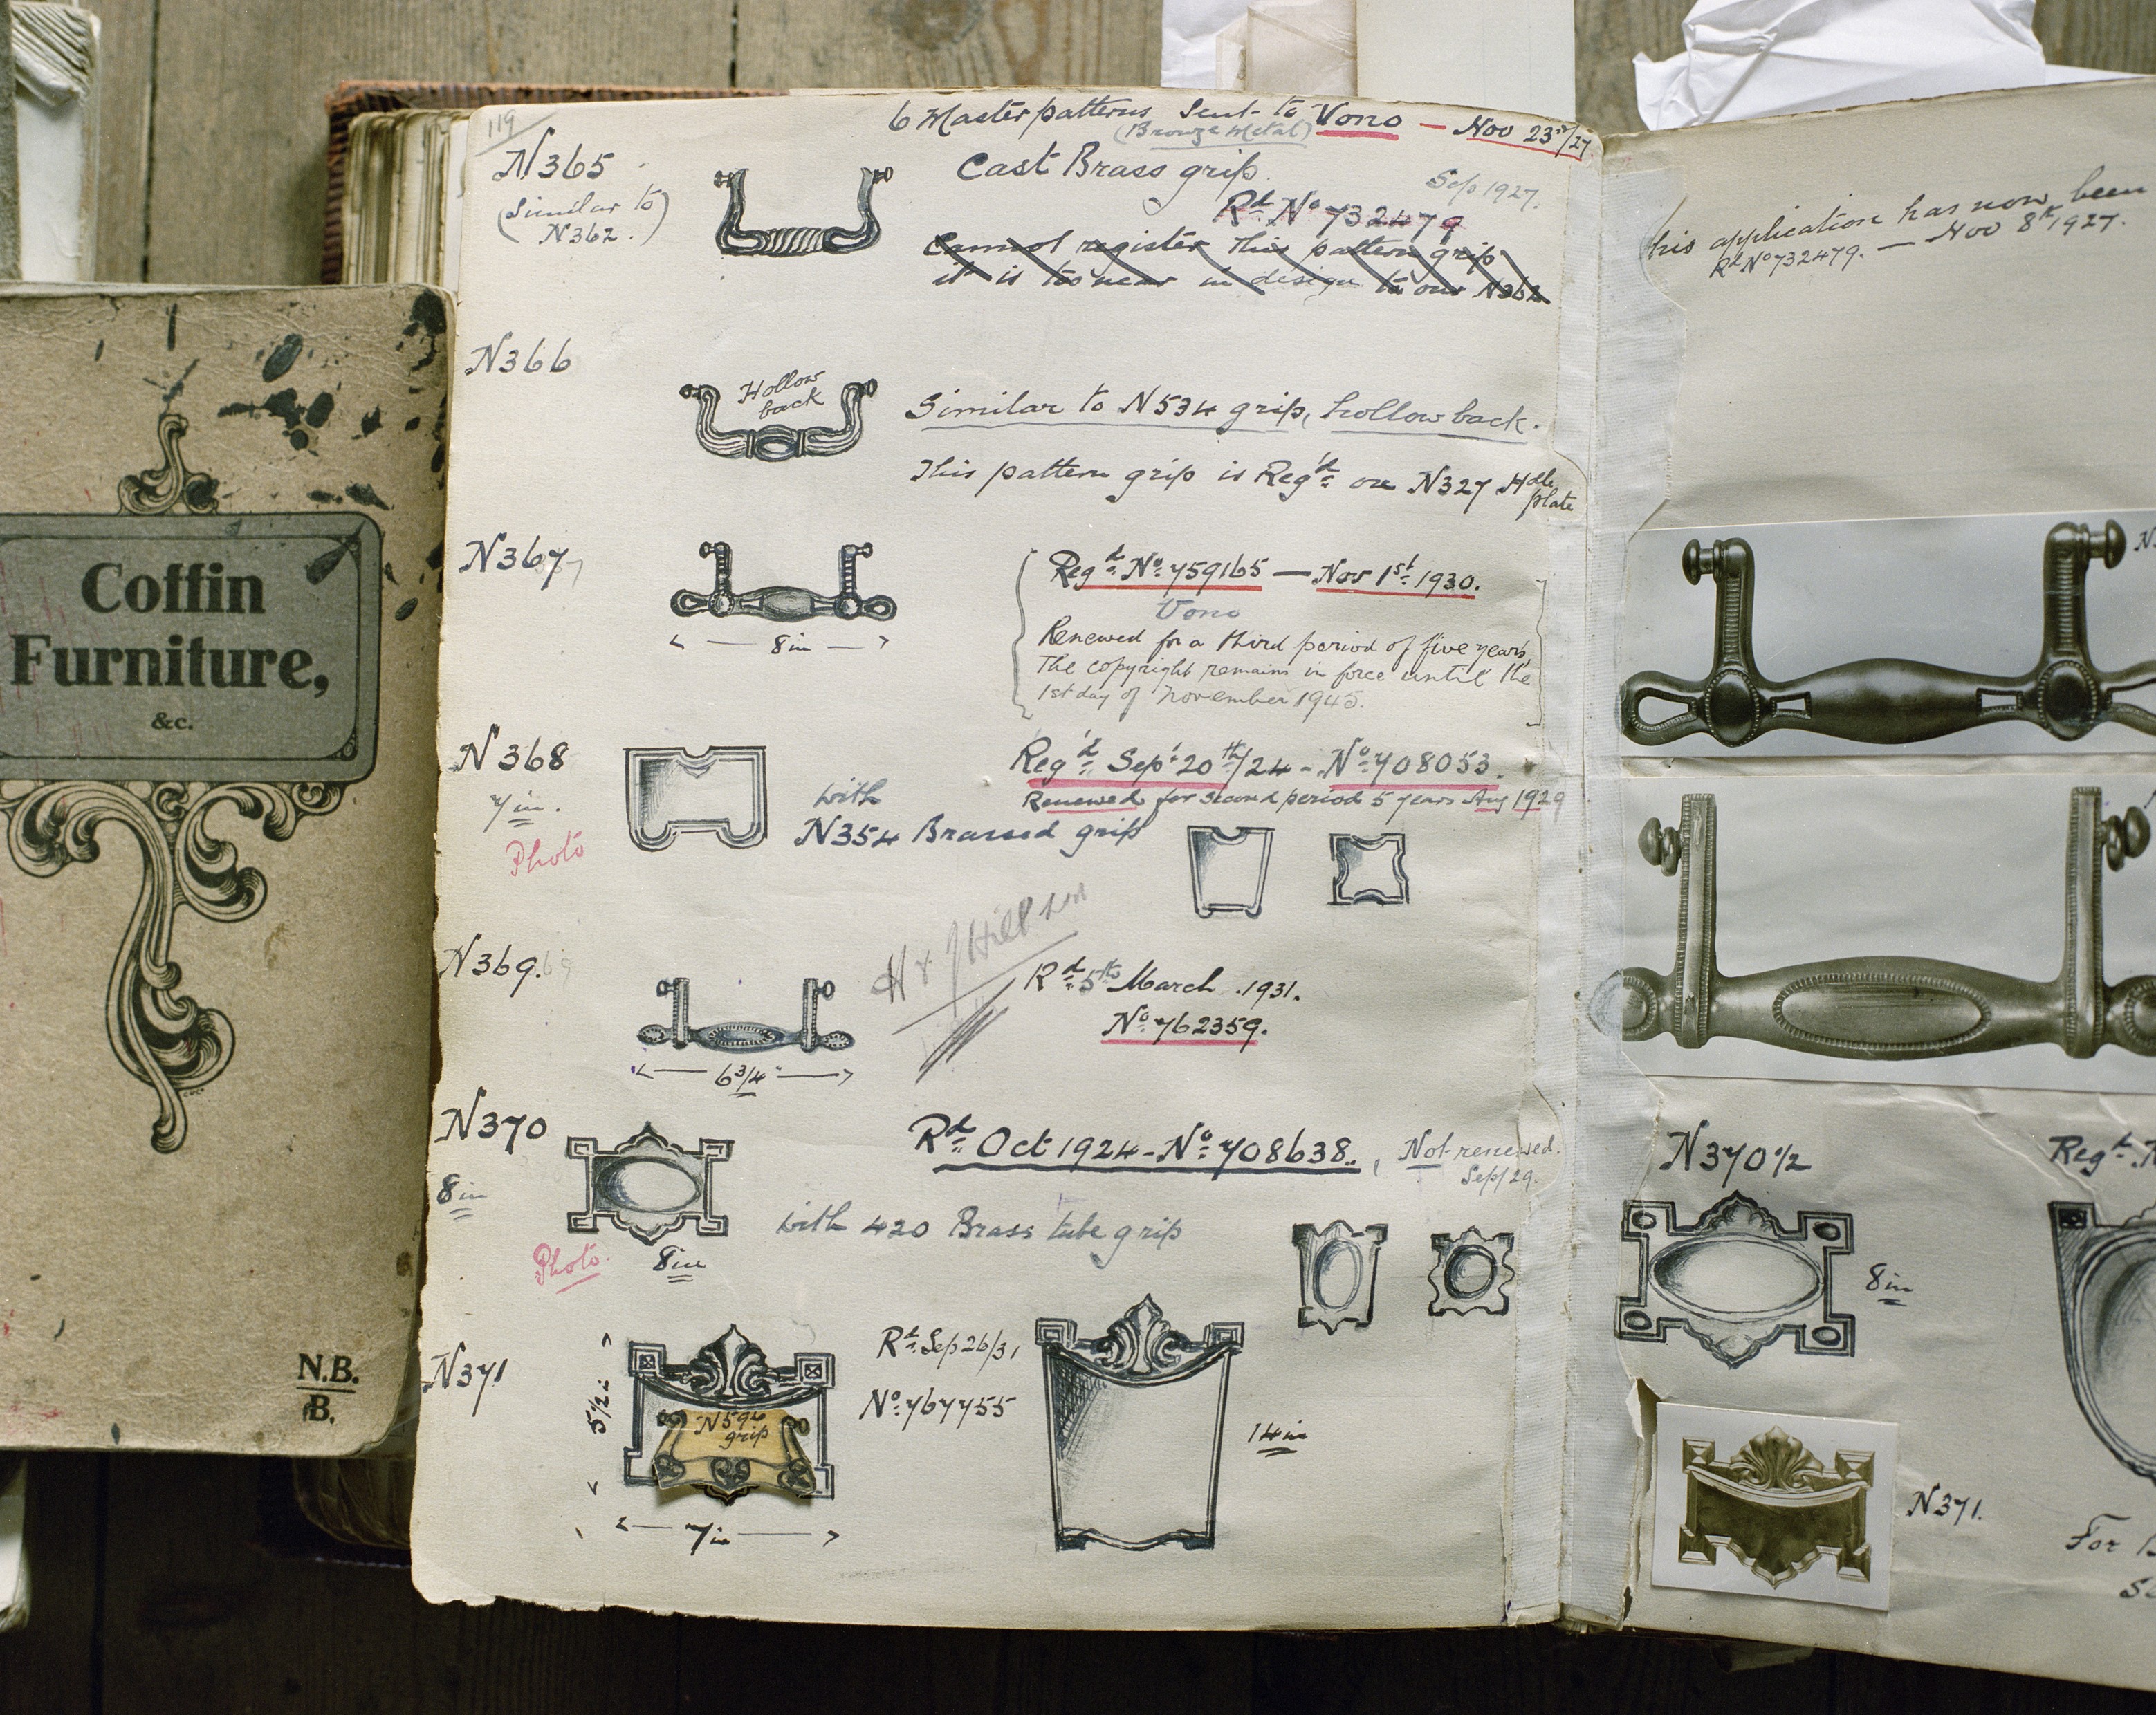 Coffin
Furniture,
&c.
N.B.
B.
119
6 Master patterns Sent to Vono — Nov 23rd/27
(Bronze Metal)
N365
(Similar to
N362.)
Cast Brass grip.
Sep 1927.
Rd No 732479
Cannot register this pattern grip
it is too near in design to our N362
N366
Hollow
back
Similar to N534 grip, hollow back.
This pattern grip is Reg'd on N327 Hdle
plate
N367
8in
Regd No. 759165 — Nov 1st 1930.
Vono
Renewed for a third period of five years
The copyright remains in force until the
1st day of November 1945.
N368
7in.
Photo
with
N354 Brassed grip
Reg'd Sep 20th/24 - No. 708053.
Renewed for second period 5 years Aug 1929
N369.
6 3/4"
H & J Hill
Rd 5th March 1931.
No. 762359.
N370
8in
Photo.
8in
Rd Oct 1924 - No. 708638., Not renewed.
Sep/29.
with 420 Brass tube grip
N371
5 1/2
N596
grip
7in
Rd Sep 26/31
No. 767755
14in
his application has now been
Rd No 732479. — Nov 8th 1927.
N370 1/2
Regd
8in
N371.
For